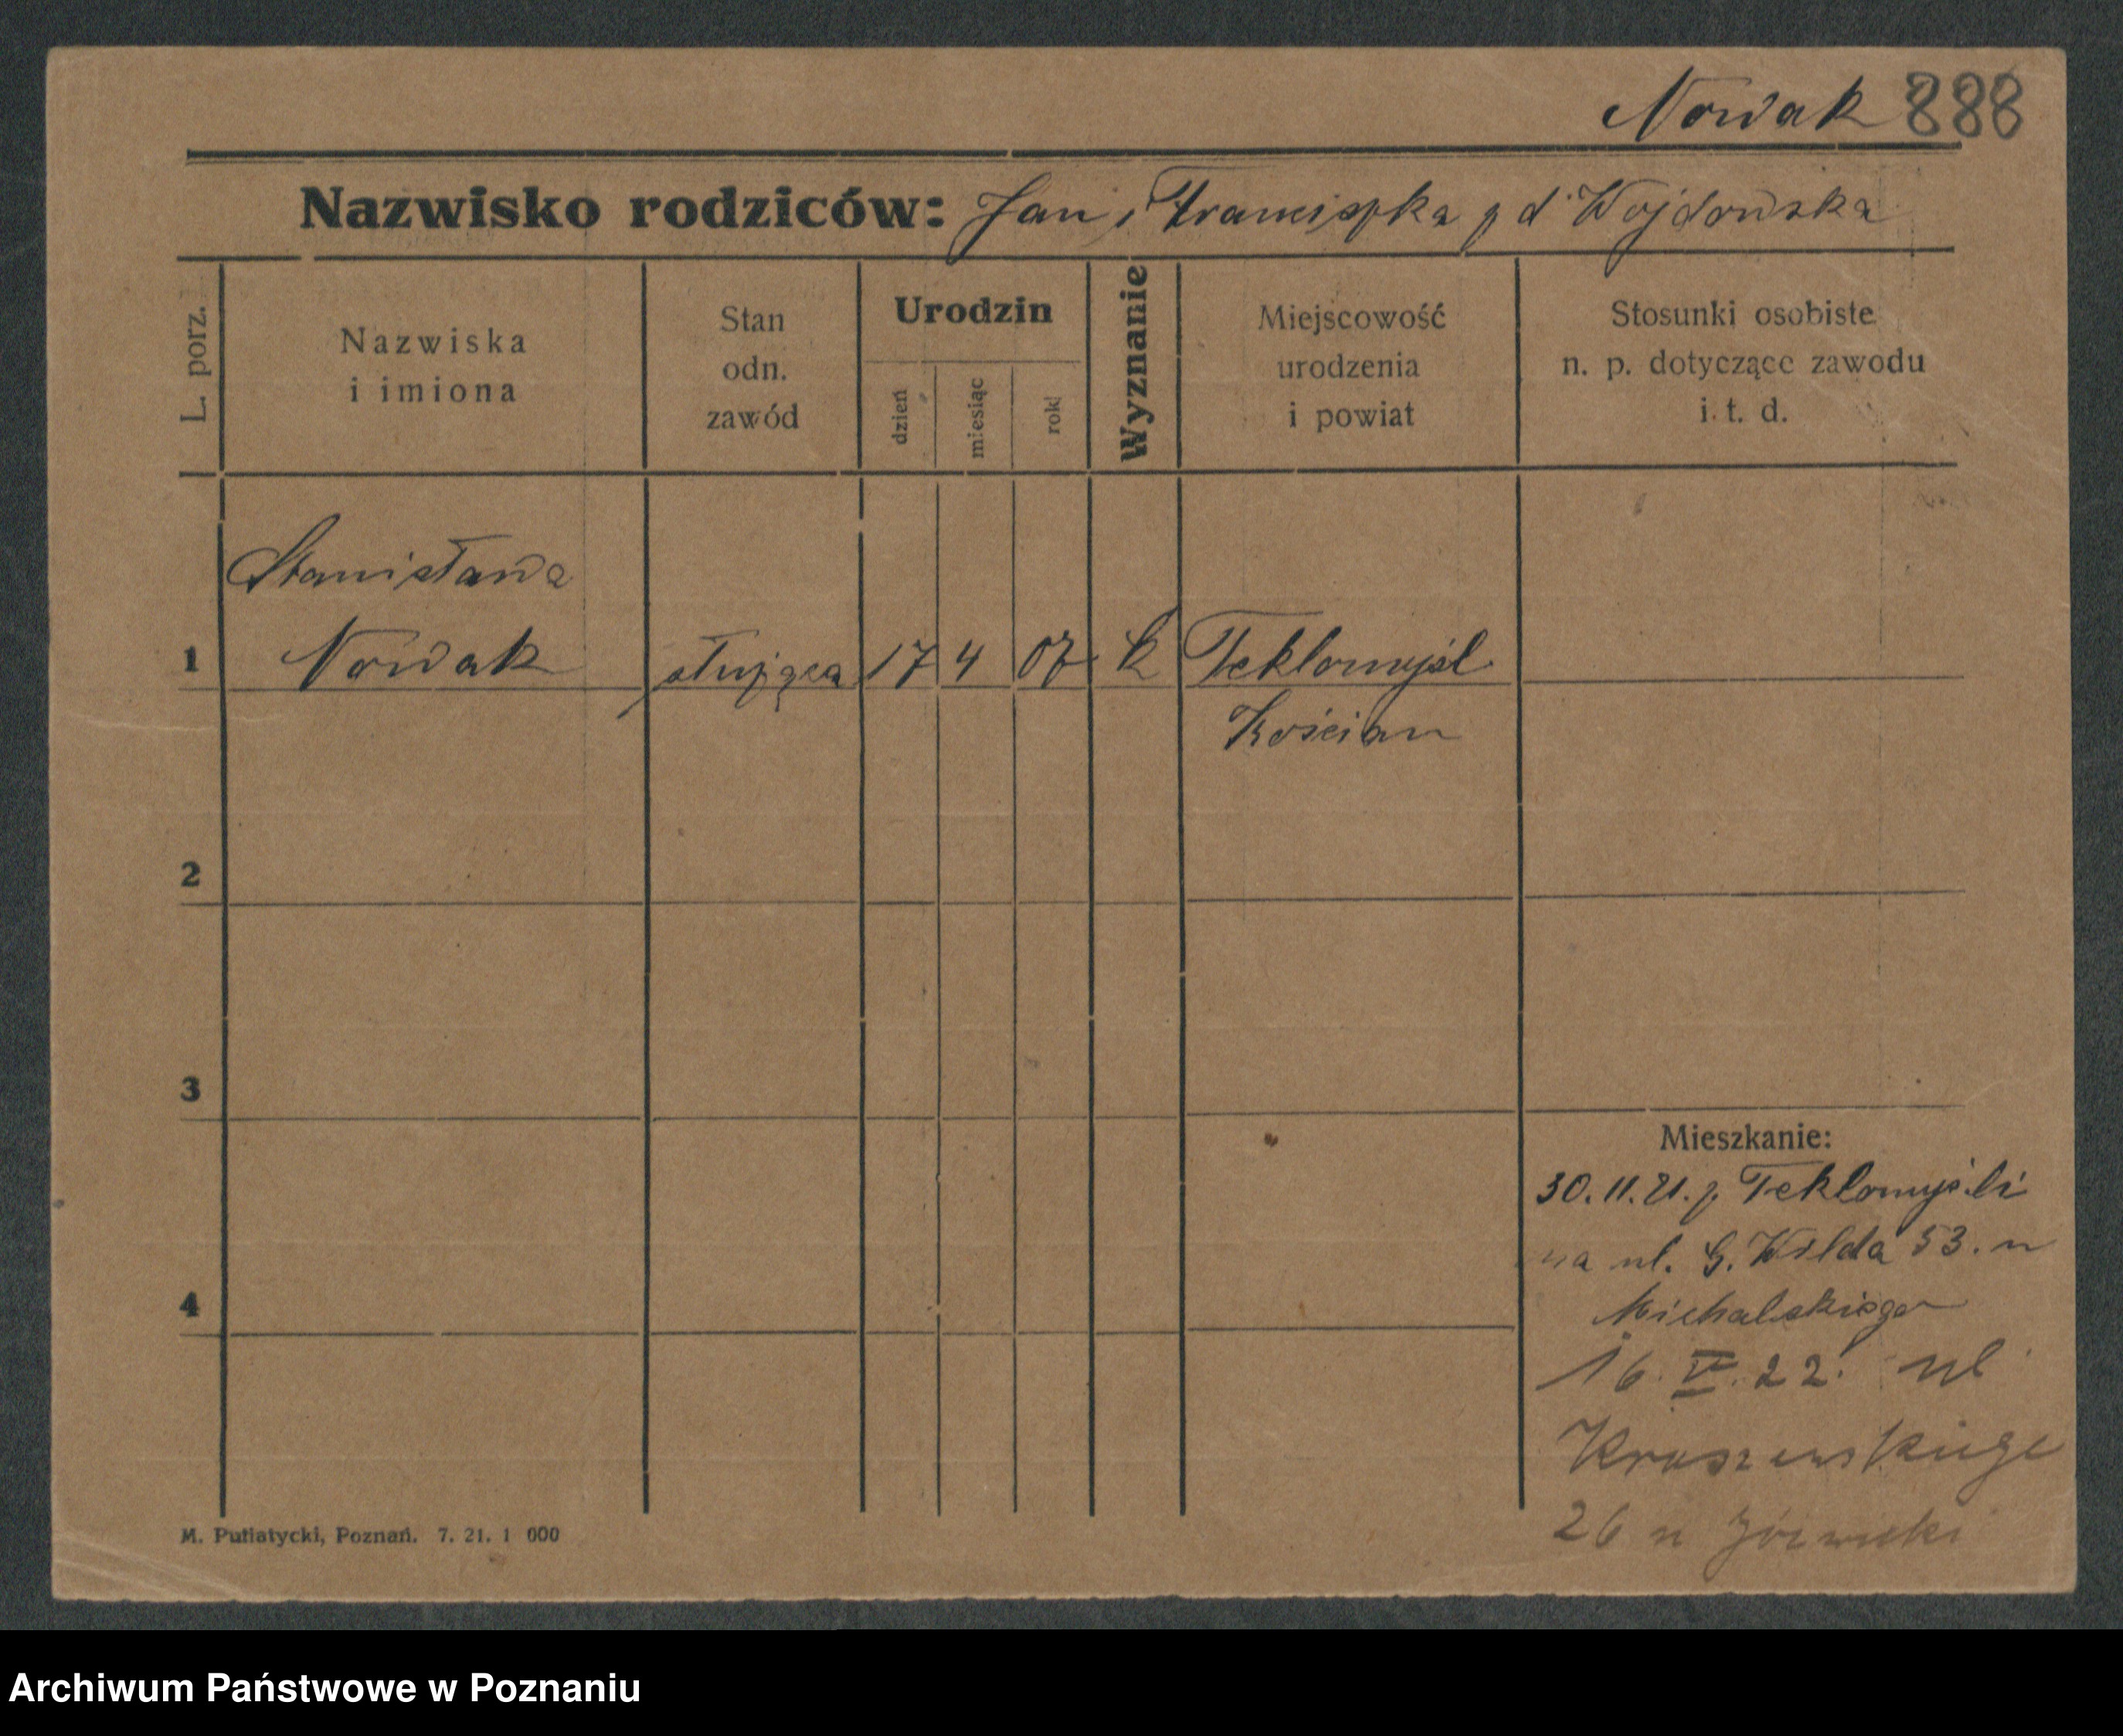 Nowak 888
Nazwisko rodziców: Jan i Franciszka z d. Wojdowska
L. porz.
Nazwiska
i imiona
Stan
odn.
zawód
Urodzin
dzień
miesiąc
rok
Wyznanie
Miejscowość
urodzenia
i powiat
Stosunki osobiste
n. p. dotyczące zawodu
i. t. d.
Stanisława
1 Nowak służąca 17 4 07 k Teklomyśl
Kościan
2
3
Mieszkanie:
30.11.21. z Teklomyśli
na ul. G. Wilda 53. u
4
Michalskiego
16.IV.22. ul
Kraszewskiego
26 u
M. Putiatycki, Poznań. 7. 21. 1 000
Archiwum Państwowe w Poznaniu